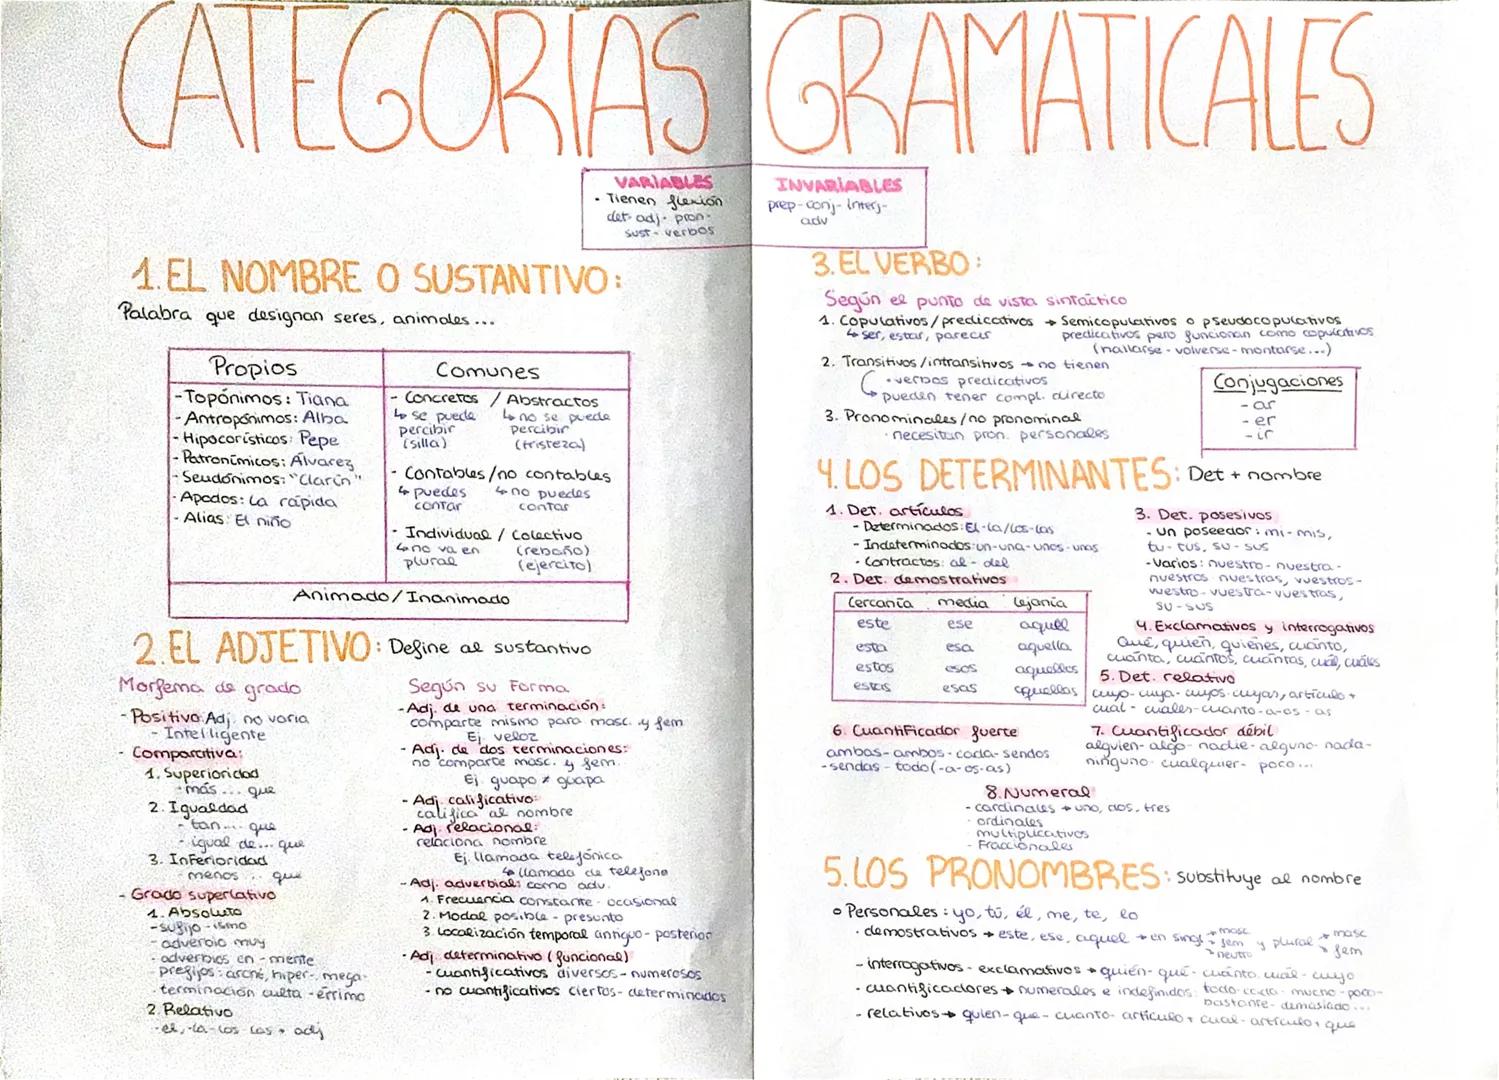 CATEGORÍAS GRAMATICALES
VARIABLES
- Tienen flexión
det- adj- pron-
sust- verbos
INVARIABLES
prep- conj- interj-
adv
1. EL NOMBRE O SUSTANTIVO:
Palabra que designan seres, animales...
Propios
- Topónimos: Tiana
- Antropónimos: Alba
- Hipocorísticos: Pepe
- Patronímicos: Álvarez
- Seudónimos: "Clarín"
- Apodos: La rápida
- Alias: El niño
Comunes
- Concretos / Abstractos
↳ se puede ↳ no se puede
percibir percibir
(silla) (tristeza)
- Contables/no contables
↳ puedes ↳ no puedes
contar contar
- Individual / Colectivo
↳ no va en (rebaño)
plural (ejercito)
Animado/Inanimado
2. EL ADJETIVO: Define al sustantivo
Morfema de grado
- Positivo: Adj. no varia
- Intelligente
- Comparativa:
1. Superioridad
- más ... que
2. Igualdad
- tan ... que
- igual de... que
3. Inferioridad
- menos .. que
- Grado superlativo
1. Absoluto
- sufijo -ismo
- adverbio muy
- adverbios en - mente
- prefijos: arché, hiper-, mega-
- terminación culta -érrimo
2. Relativo
- el, -la- los- las + adj
Según su Forma
- Adj. de una terminación:
comparte mismo para masc. y fem
Ej. veloz
- Adj. de dos terminaciones:
no comparte masc. y fem.
Ej. guapo ≠ guapa
- Adj. calificativo:
califica al nombre
- Adj. relacional:
relaciona nombre
Ej. llamada telefónica
↳ llamada de telefono
- Adj. adverbial: como adv.
1. Frecuencia constante - ocasional
2. Modal posible - presunto
3. Localización temporal antiguo- posterior
- Adj. determinativo (funcional)
- cuantificativos diversos- numerosos
- no cuantificativos ciertos- determinados
3. EL VERBO:
Según el punto de vista sintáctico
1. Copulativos/predicativos → Semicopulativos o pseudocopulativos
↳ ser, estar, parecer predicativos pero funcionan como copulativos
(hallarse - volverse - montarse...)
2. Transitivos/intransitivos → no tienen
• verbos predicativos
pueden tener compl. directo
3. Pronominales/no pronominal
· necesitan pron. personales
Conjugaciones
- ar
- er
- ir
4. LOS DETERMINANTES: Det + nombre
1. Det. artículos
- Determinados: El-la/los-las
- Indeterminados: un-una-unos-unas
- Contractos: al - del
2. Det. demostrativos
Cercanía media lejanía
este ese aquel
esta esa aquella
estos esos aquellos
estas esas aquellas
3. Det. posesivos
- Un poseedor: mi- mis,
tu- tus, su- sus
- Varios: nuestro- nuestra-
nuestros nuestras, vuestros-
vuestro- vuestra- vuestras,
su- sus
4. Exclamativos y interrogativos
Qué, quien, quienes, cuanto,
cuánta, cuántos, cuántas, cuál, cuáles
5. Det. relativo
cuyo- cuya- cuyos- cuyas, artículo +
cual- cuales- cuanto- a- os- as
6. Cuantificador fuerte
ambas- ambos- cada- sendos
-sendas - todo(-a-os-as)
7. Cuantificador débil
alguien- algo- nadie- alguno- nada-
ninguno- cualquier- poco...
8. Numeral
- cardinales → uno, dos, tres
· ordinales
· multiplicativos
- Fraccionales
5. LOS PRONOMBRES: substituye al nombre
o Personales: yo, tú, él, me, te, lo
· demostrativos → este, ese, aquel → en sing → masc → fem → neutro y plural → masc → fem
- interrogativos - exclamativos → quién- qué- cuánto, cuál- cuyo
· cuantificadores → numerales e indefinidos: todo- cada- mucho- poco-
bastante- demasiado...
- relativos → quien- que- cuanto- artículo + cual- artículo + que